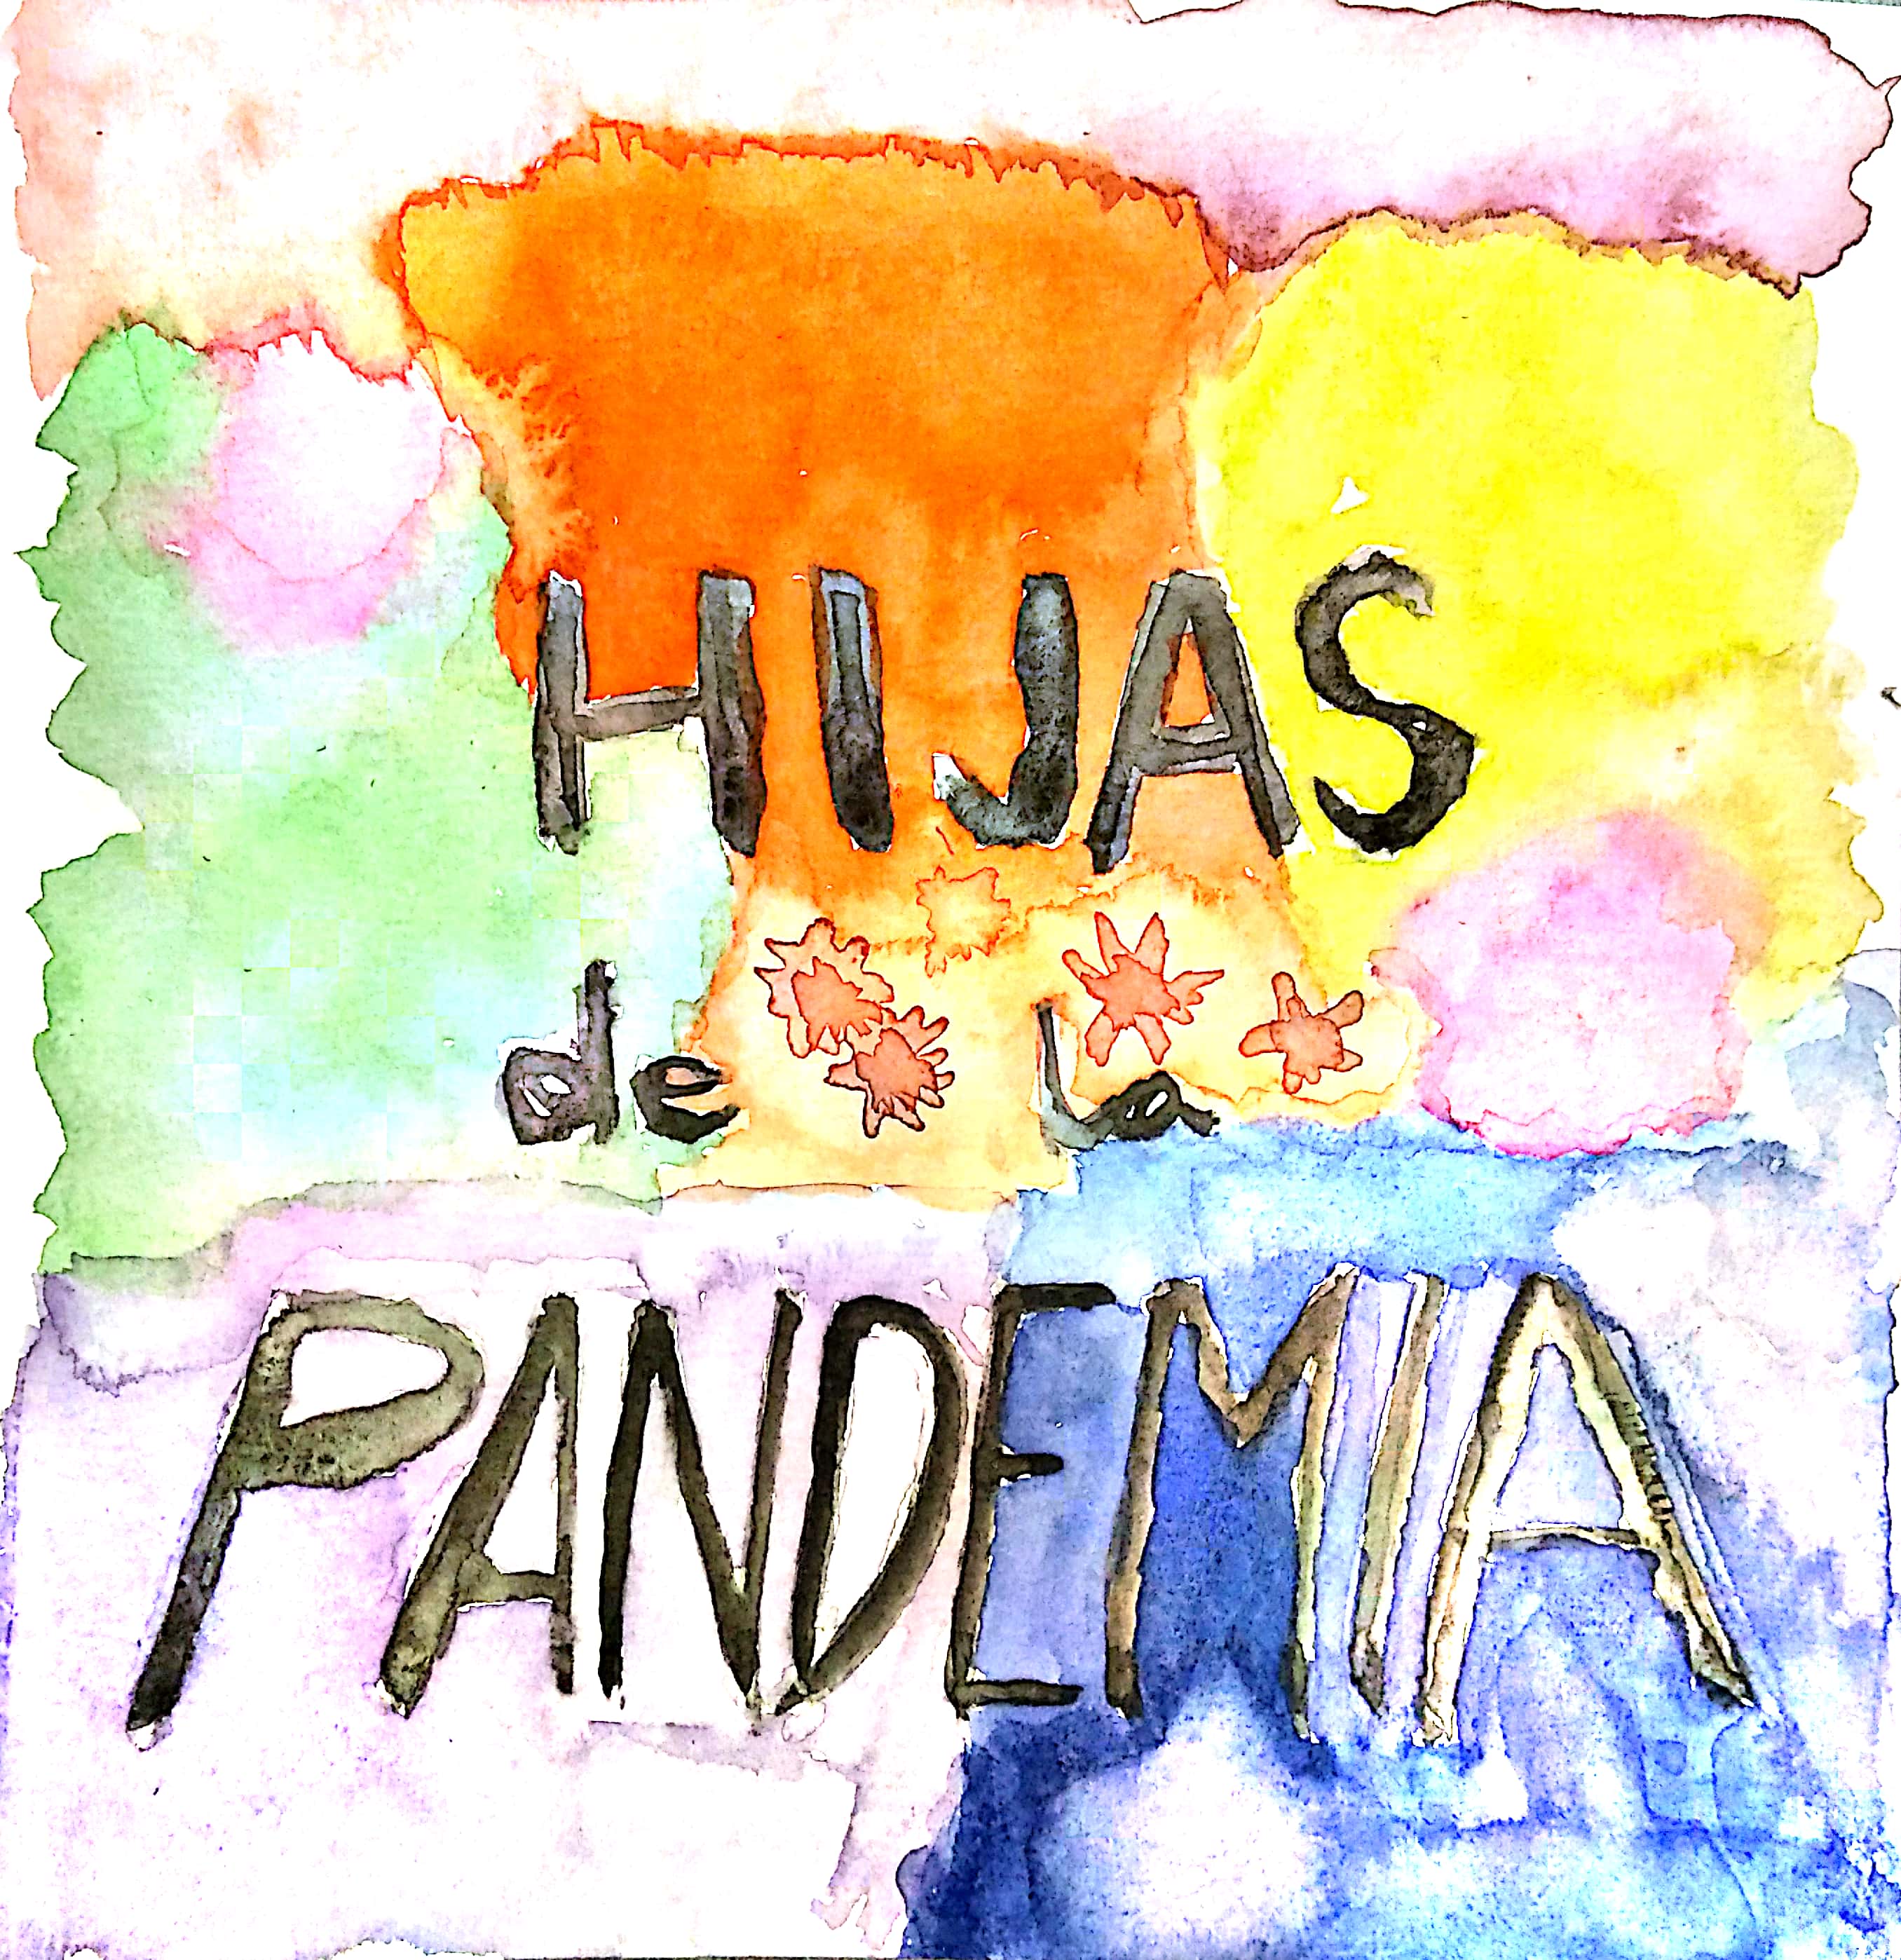 HIJAS
de la
PANDEMIA